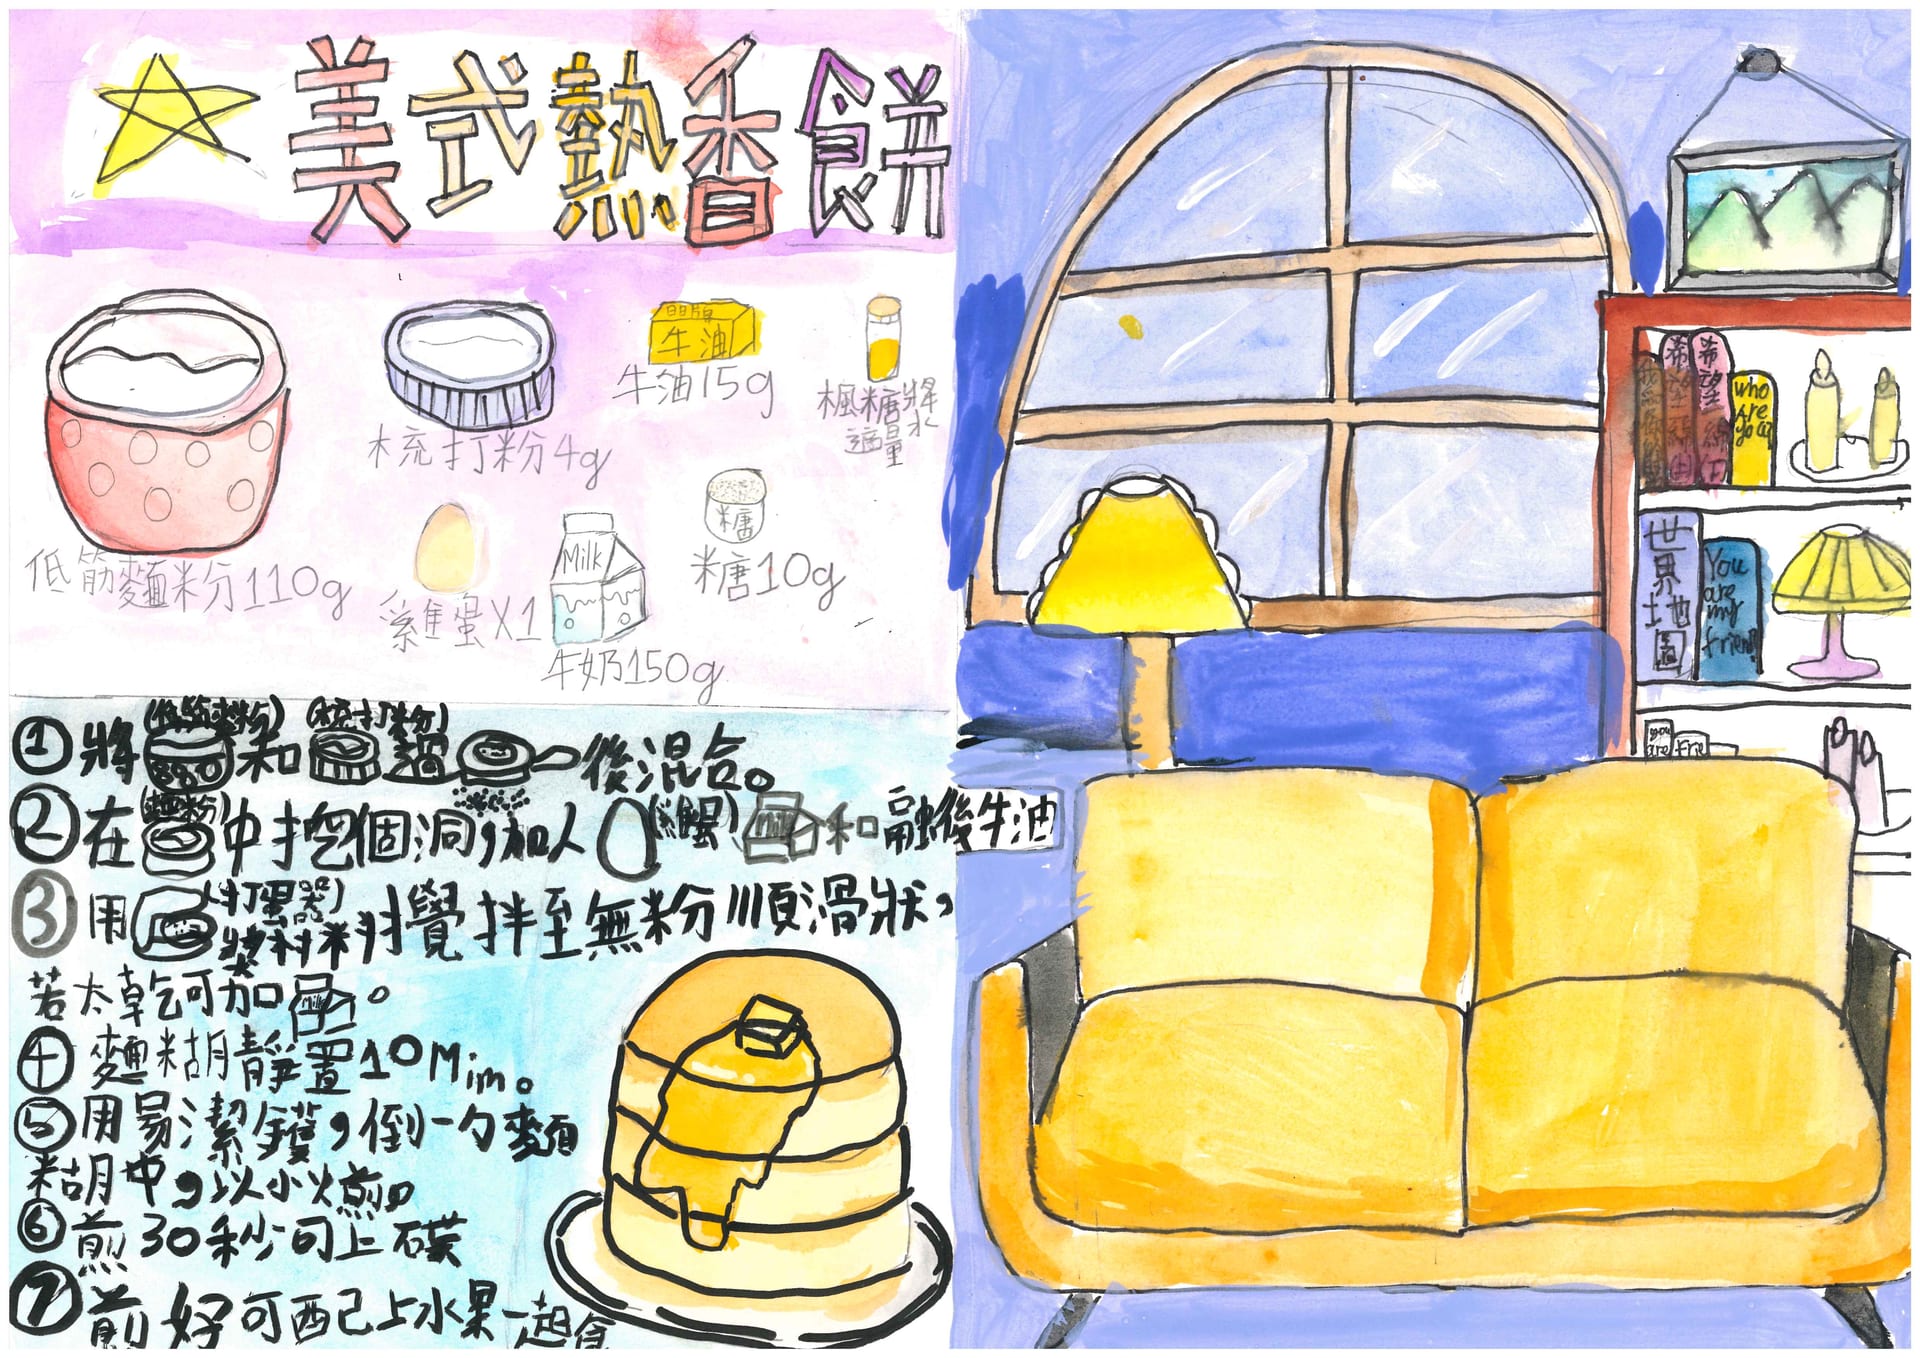 美式熱香餅
牛油
牛油15g
梳打粉4g
楓糖將水
適量
糖
糖10g
Milk
低筋麵粉110g
雞蛋X1
牛奶150g
①將(低筋麵粉)和(梳打粉)過後混合。
②在(麵粉)中挖個洞,加人(雞蛋)和融後牛油
③用(打蛋器)攪拌至無粉順滑狀,
若太乾可加。
④麵粘胡靜置10Mim。
⑤用易潔鑊,倒一勺麵
粘胡中,以小火煎。
⑥煎30秒可上碟
⑦煎好可配上水果一起食
希望
希望之綿(下)
who
Are
you
世界地圖
You
are
my
friend
you
are
frie